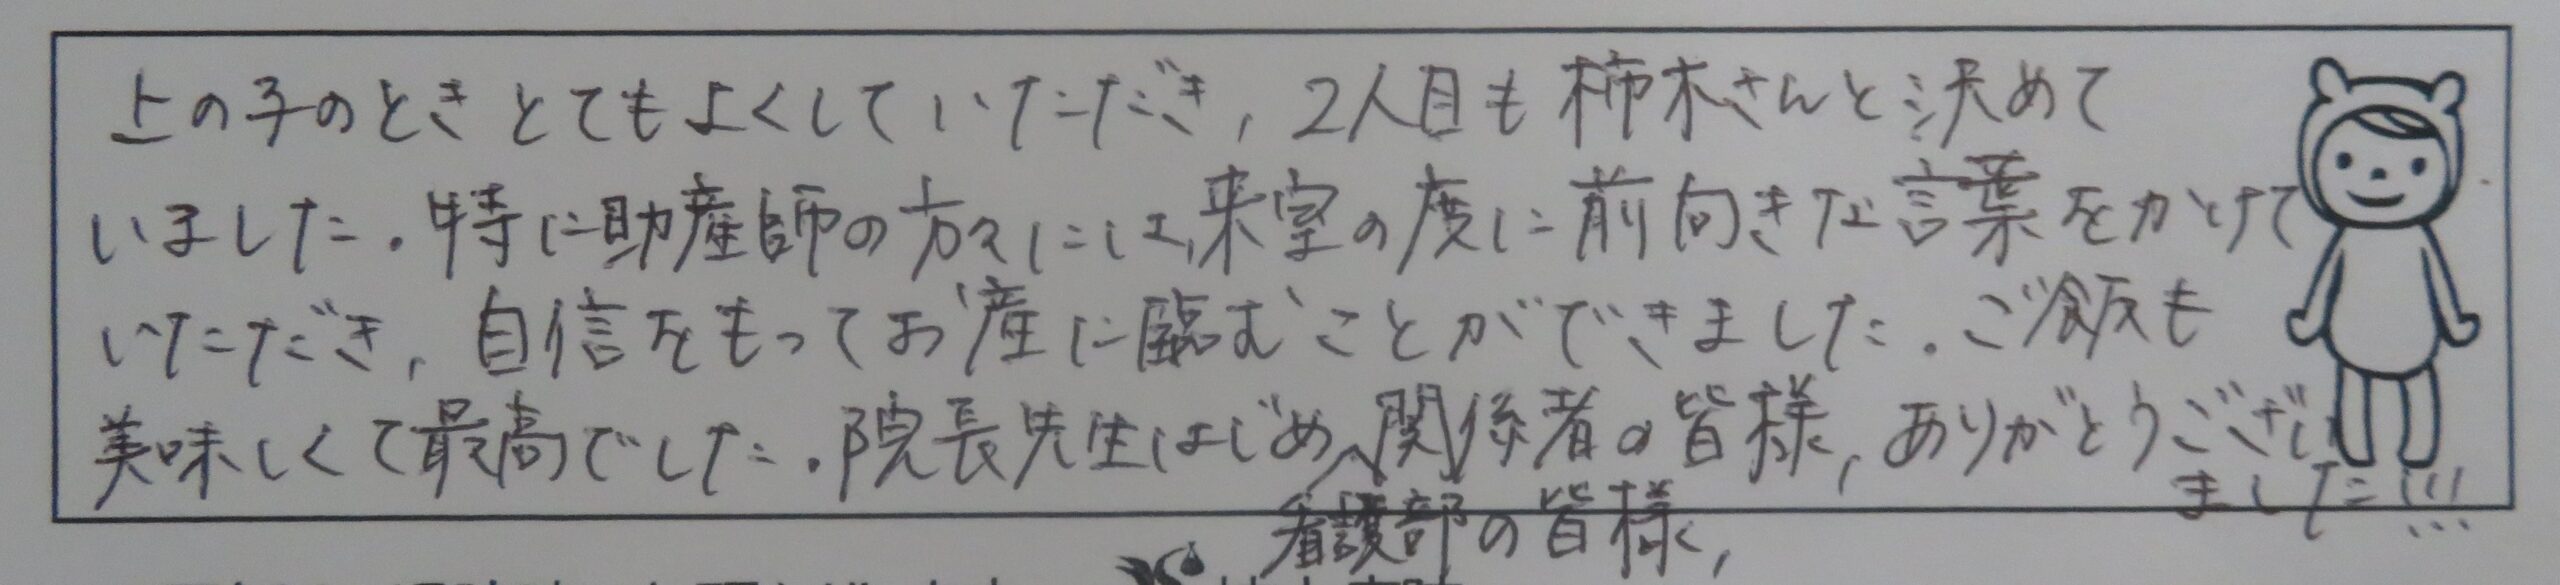 上の子のときとてもよくしていただき，2人目も柿木さんと決めて
いました．特に助産師の方々には，来室の度に前向きな言葉をかけて
いただき，自信をもってお産に臨むことができました．ご飯も
美味しくて最高でした．院長先生はじめ関係者の皆様，ありがとうござい
ました!!!
看護部の皆様，